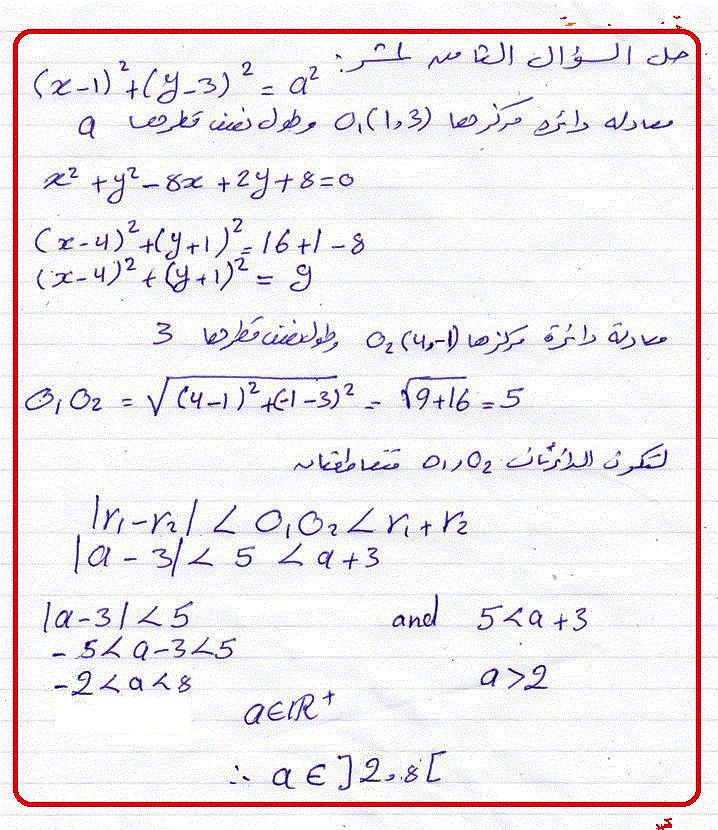 حل السؤال الثامن عشر:
(x-1)² + (y-3)² = a²
معادلة دائرة مركزها O₁(1,3) وطول نصف قطرها a
x² + y² - 8x + 2y + 8 = 0
(x-4)² + (y+1)² = 16+1-8
(x-4)² + (y+1)² = 9
معادلة دائرة مركزها O₂(4,-1) وطول نصف قطرها 3
O₁O₂ = √(4-1)² + (-1-3)² = √9+16 = 5
لتكون الدائرتان O₁,O₂ متقاطعتان
|r₁-r₂| < O₁O₂ < r₁+r₂
|a-3| < 5 < a+3
|a-3| < 5 and 5 < a+3
-5 < a-3 < 5
-2 < a < 8 a > 2
a∈ℝ⁺
∴ a ∈ ]2,8[